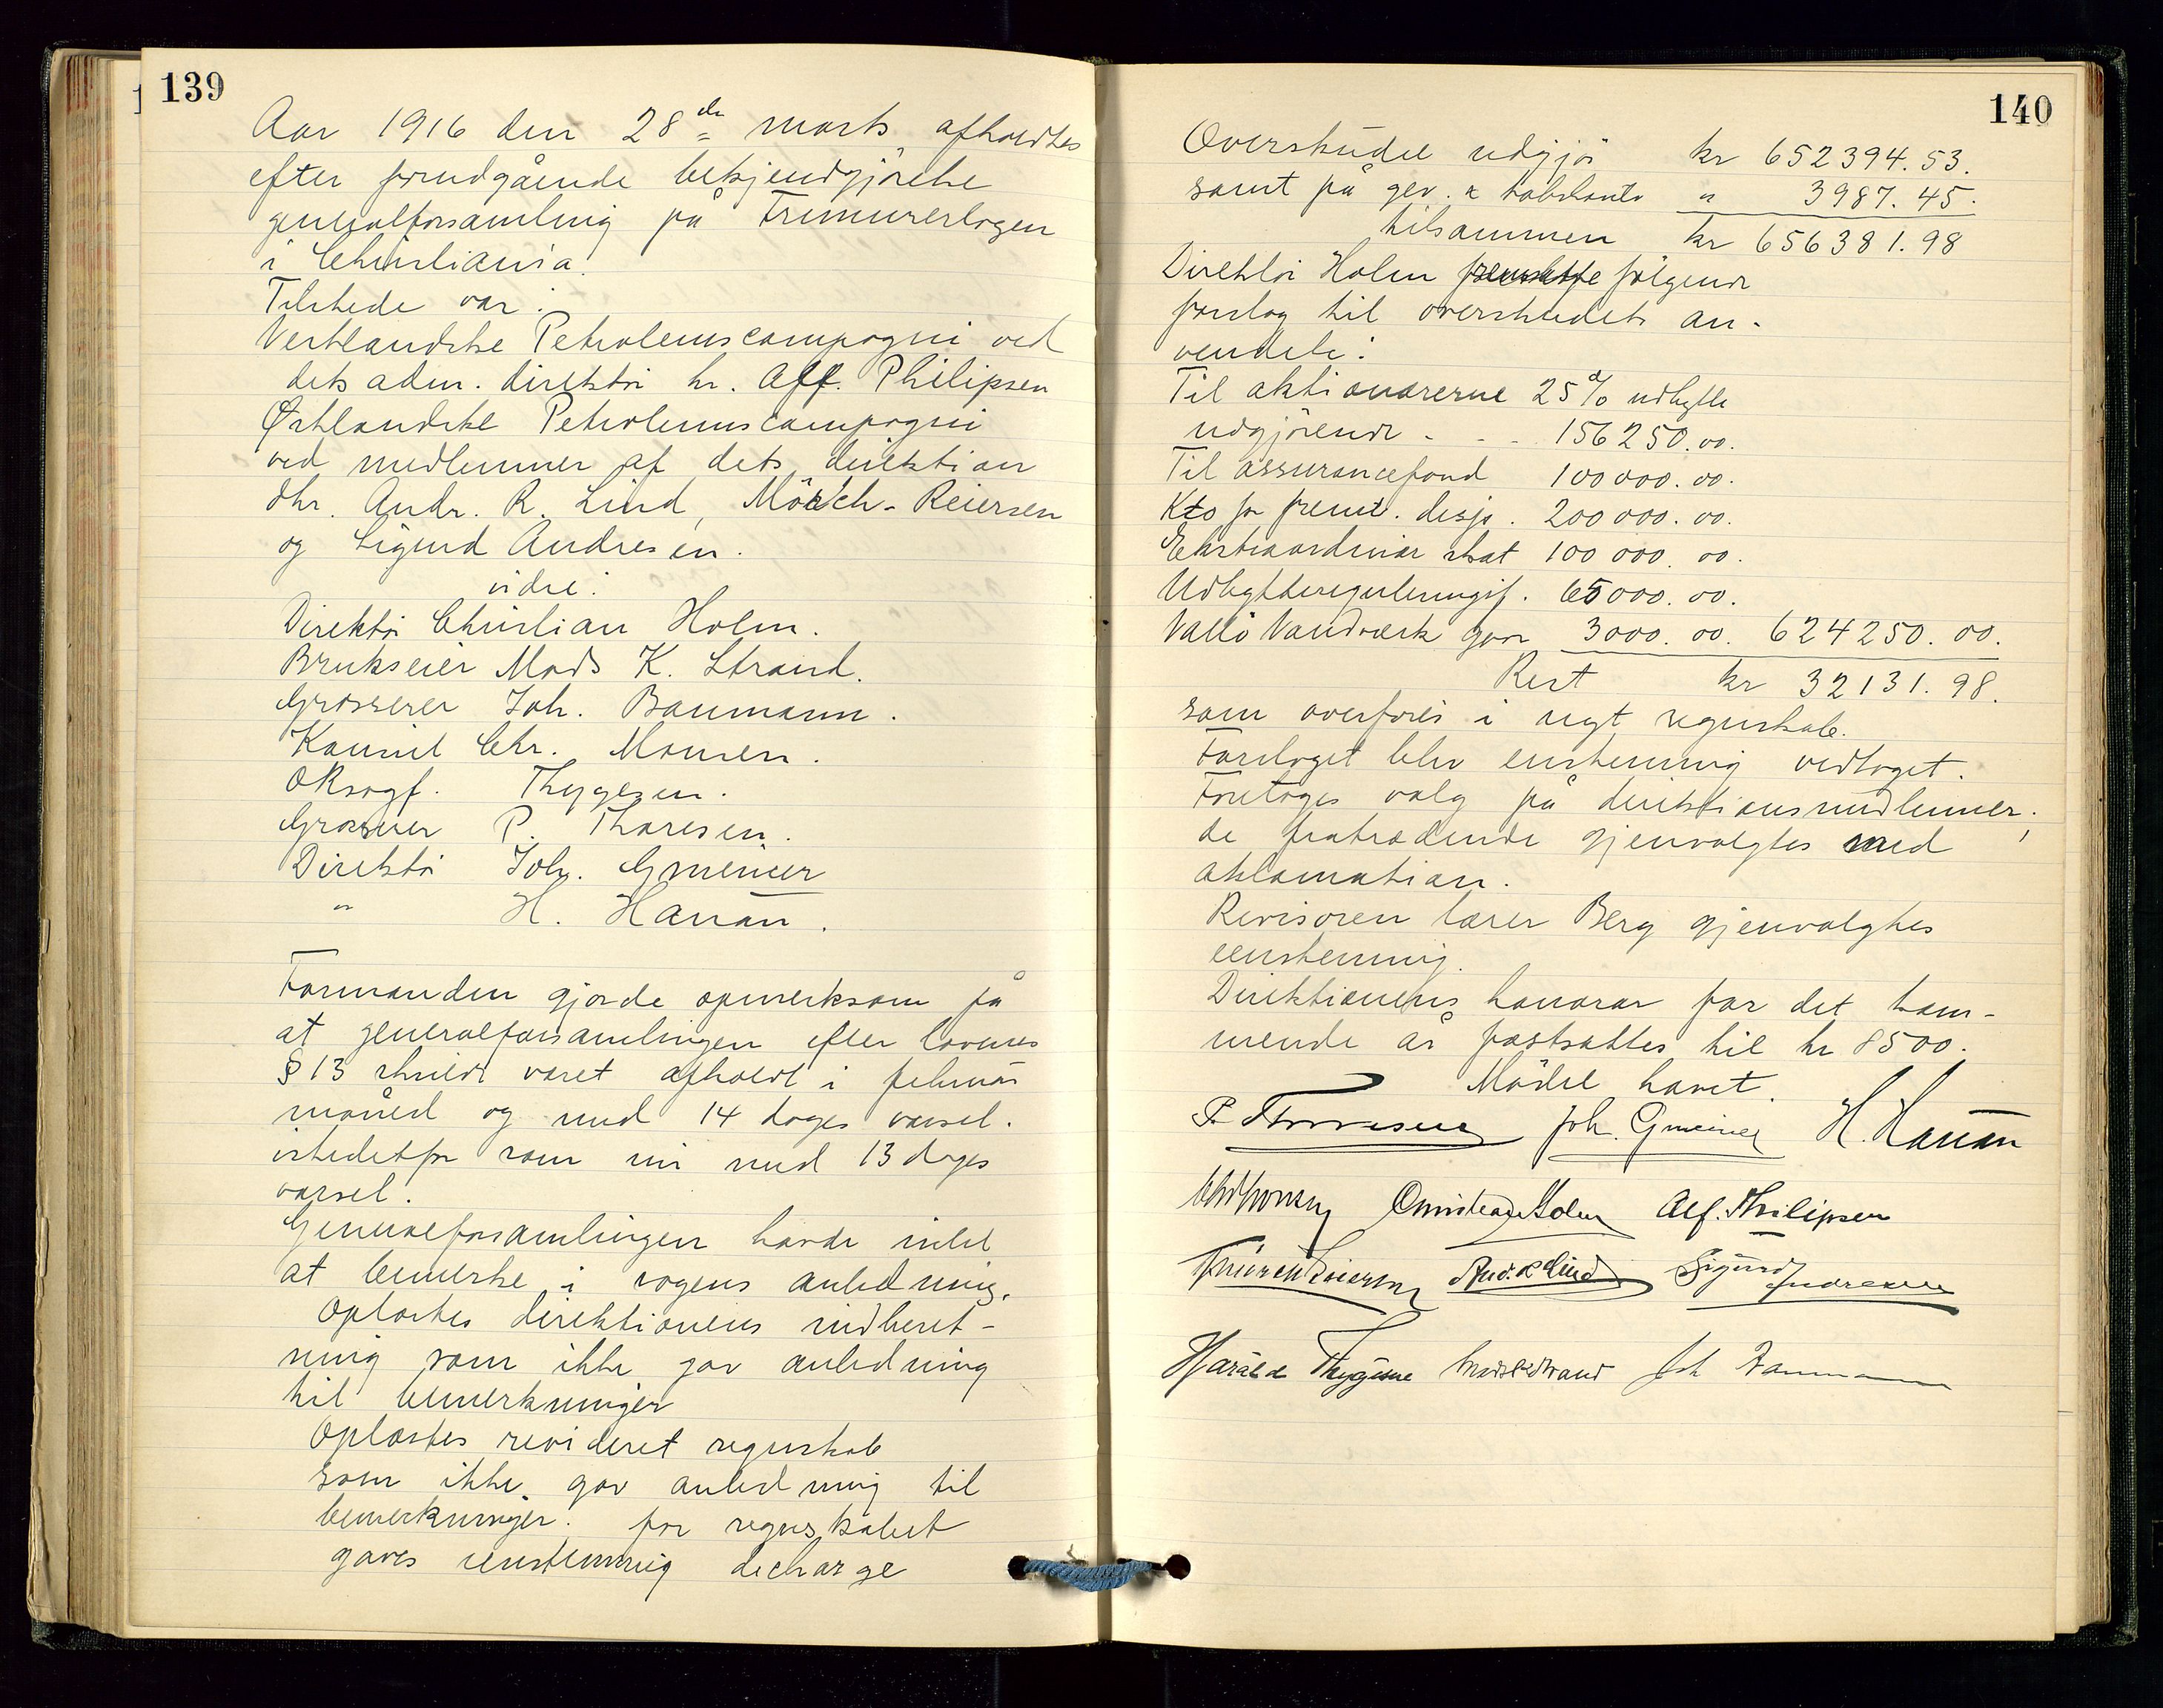 139
Aar 1916 den 28de marts afholdtes
efter forudgående bekjendgjörelse
generalforsamling på Frimurerlogen
i Christiania.
Tilstede var:
Vestlandske Petroleumscompagni ved
dets adm. direktör hr. Alf. Philipsen
Østlandske Petroleumscompagni
ved medlemmer af dets direktion
dhr. Andr. R. Lind, Mörch-Reiersen
og Sigurd Andresen.
vidre:
Direktör Christian Holm.
Brukseier Mads K. Strand.
Grosserer Joh. Baumann.
Konsul Chr. Monsen.
ORsagf. Thygesen.
Grosserer P. Thoresen.
Direktör Joh. Gmeiner
" H. Hanan.
Formanden gjorde opmerksom på
at generalforsamlingen efter lovenes
§ 13 skulde været afholdt i februar
måned og med 14 dages varsel.
istedetfor som nu med 13 dages
varsel.
Generalforsamlingen havde intet
at bemerke i sagens anledning.
Oplæstes direktionens indberet-
ning som ikke gav anledning
til bemerkninger
Oplæstes revideret regnskab
som ikke gav anledning til
bemerkninger. for regnskabet
gaves eenstemmig decharge
140
Overskudet udgjör kr 652394.53.
samt på gev. & tabskonto " 3987.45.
tilsammen kr 656381.98
Direktör Holm fremsatte fölgende
forslag til overskudets an-
vendelse:
Til aktionærerne 25% udbytte
udgjörende - - - 156250.00.
Til assurancefond 100000.00.
Kto for fremt. disp. 200000.00.
Ekstraordinær skat 100000.00.
Udbyttereguleringsf. 65000.00.
Vallö Vandværk gave 3000.00. 624250.00.
Rest kr 32131.98.
som overföres i nyt regnskab.
Forslaget blev enstemmig vedtaget.
Foretoges valg på direktionsmedlemmer;
de fratrædende gjenvalgtes med
aklamation.
Revisoren lærer Berg gjenvalgtes
eenstemmig.
Direktionens honorar for det kom-
mende år fastsattes til kr 8500.
Mödet hævet.
P. Thoresen Joh. Gmeiner H. Hanan
Chr Monsen Christian Holm Alf. Philipsen
Mörch Reiersen And. R Lind Sigurd Andresen
Harald Thygesen Mads K Strand Joh Baumann